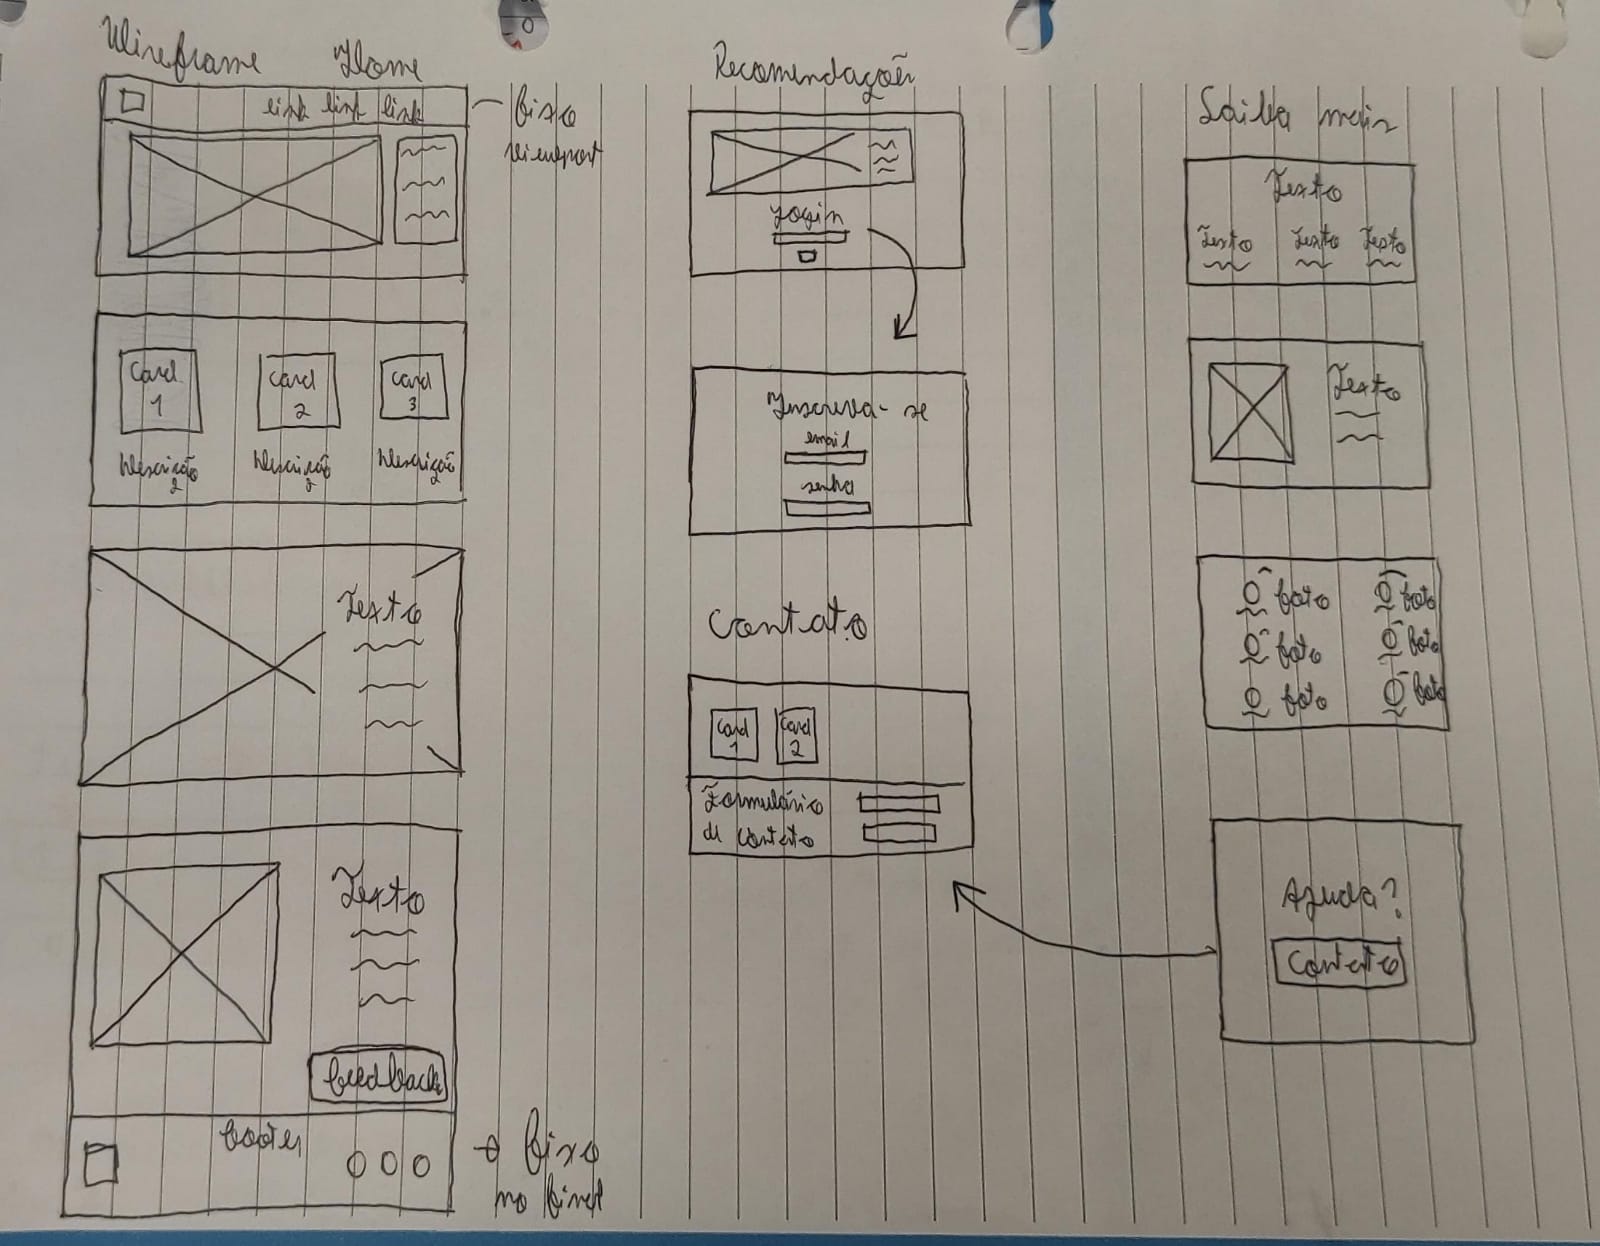 Wireframe Home
link link link
fixo
viewport
Card
1
Card
2
Card
3
Descrição
Descrição
Descrição
Texto
Texto
feedback
footer
→ fixo
no final
Recomendações
Login
Inscreva-se
email
senha
Contato
Card
1
Card
2
Formulário
de contato
Saiba mais
Texto
Texto Texto Texto
Texto
foto foto
foto foto
foto foto
Ajuda?
Contato